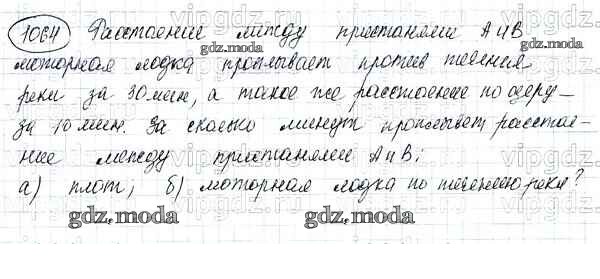 1064 Расстояние между пристанями А и В
моторная лодка проплывает против течения
реки за 30 мин, а такое же расстояние по озеру –
за 10 мин. За сколько минут проплывет расстоя-
ние между пристанями А и В:
а) плот; б) моторная лодка по течению реки?
gdz.moda
gdz.moda
gdz.moda
gdz.moda
gdz.moda